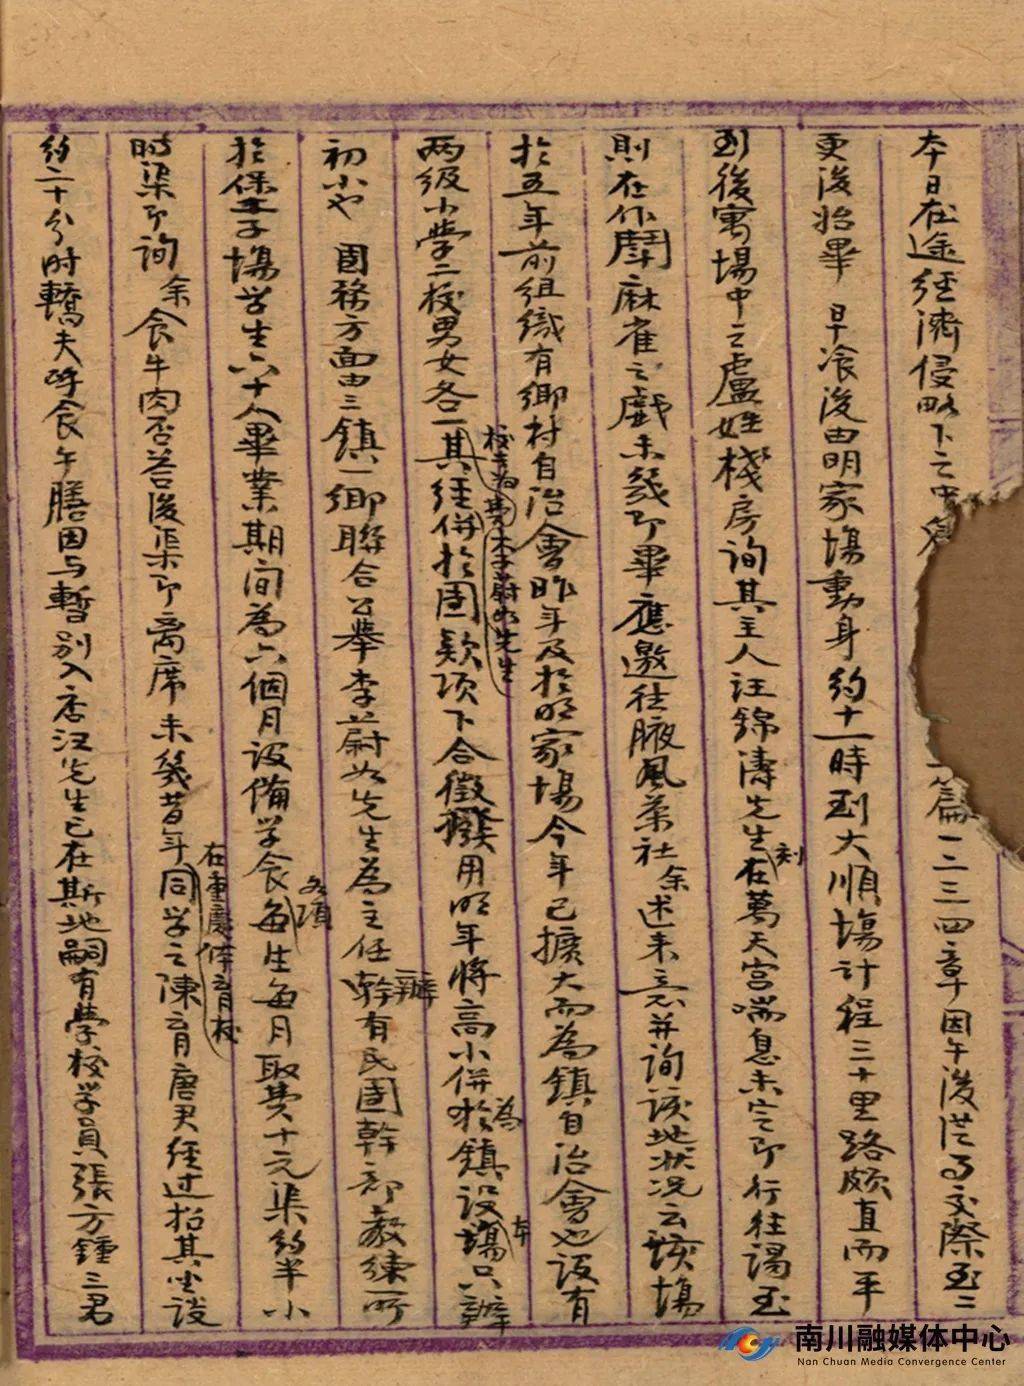 本日在途經濟侵略下之中 篇一二三四章因午後從事交際至二
更後始畢 早飡後由明家塲動身約十一時到大順塲計程三十里路頗直而平
到後寓場中之盧姓棧房詢其主人汪錦濤先生刻在萬天宫喘息未定即行往謁至
則在作鬪麻雀之戲未幾即畢應邀往腋風茶社余述来意并詢該地状况云該塲
於五年前組織有鄉村自治會昨年及於明家塲今年已擴大而為鎮自治會也設有
两级小學二校男女各一校長為李蔚如先生其經併於團欵項下合徵撥用明年將高小併於鎮設為本塲只辦
初小也 團務方面由三鎮一鄉聯合公舉李蔚如先生為主任辦有民團幹部教練所
於保子塲学生六十人畢業期间為六個月设備学食各項每生每月取費十元渠約半小
時渠即詢余食牛肉否答後渠即离席未幾昔年在重慶体育校同学之陳育唐君經过招其坐談
約二十分时轎夫呼食午膳因与暫别入店汪先生已在斯地嗣有學校学員張方鍾三君
南川融媒体中心
Nan Chuan Media Convergence Center